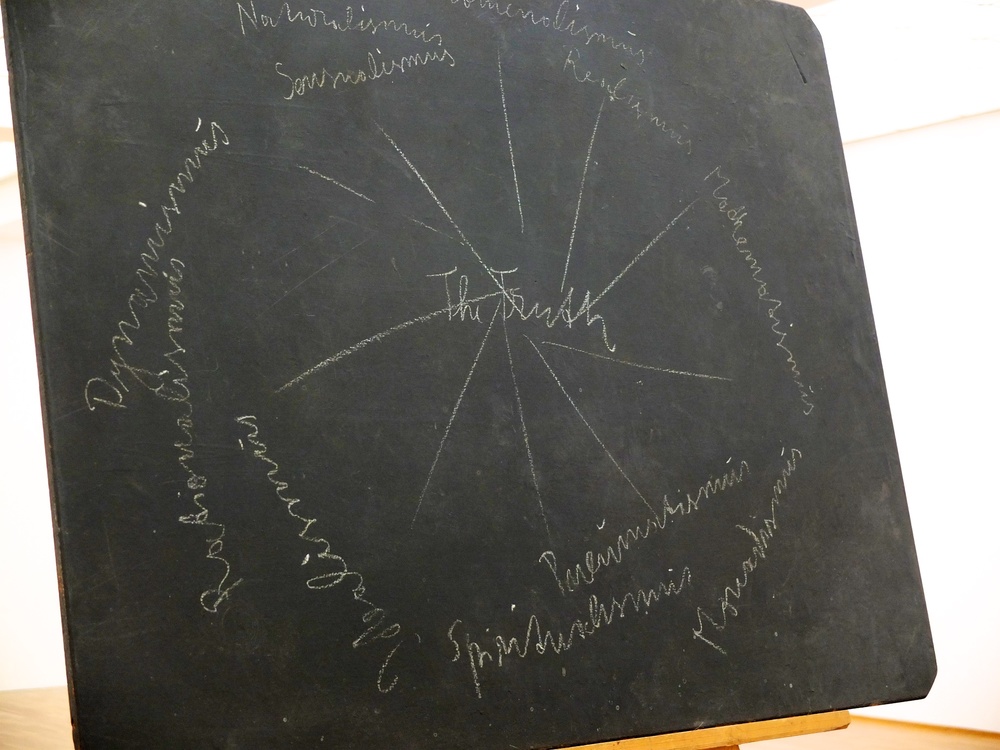 Naturalismus
Sensualismus
Realismus
Dynamismus
Mathematismus
The Truth
Rationalismus
Idealismus
Pneumatismus
Spiritualismus
Monadismus